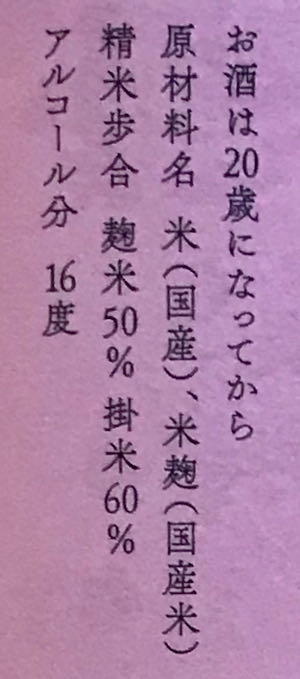 お酒は20歳になってから
原材料名 米(国産)、米麹(国産米)
精米歩合 麹米50% 掛米60%
アルコール分 16度